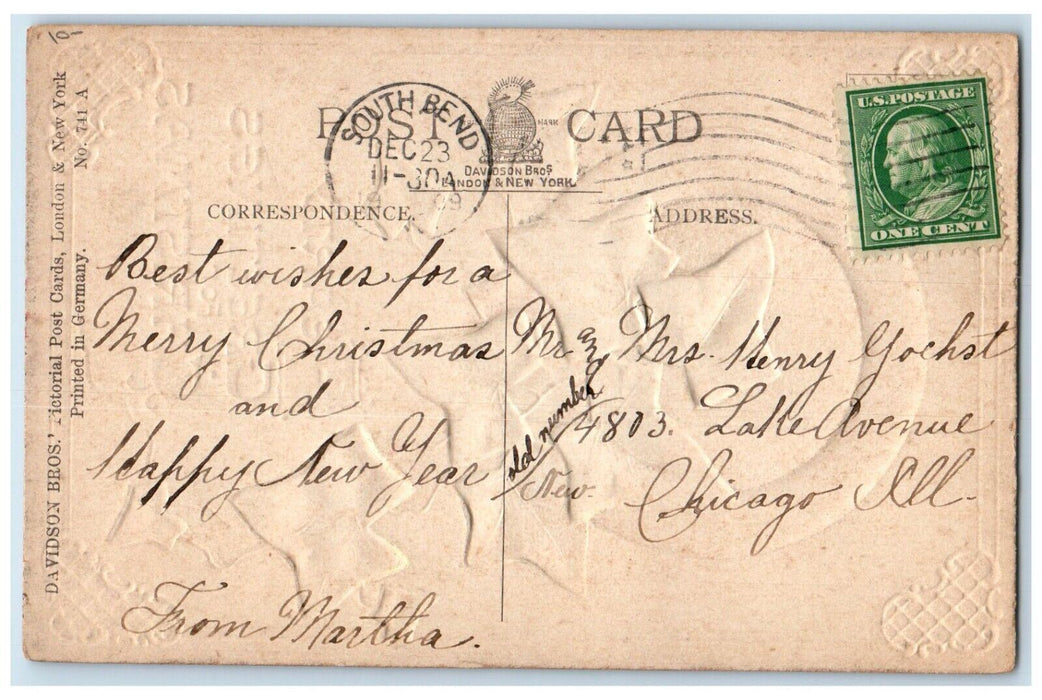 DAVIDSON BROS.' Pictorial Post Cards, London & New York
No. 741 A
Printed in Germany.
POST CARD
MARK
DAVIDSON BROS
LONDON & NEW YORK.
SOUTH BEND
DEC 23
11-30A
09
U.S. POSTAGE
ONE CENT
CORRESPONDENCE.
Best wishes for a
Merry Christmas
and
Happy New Year
From Martha.
ADDRESS.
Mr and Mrs. Henry Gochst
old number 4803. Lake Avenue
New.
Chicago Ill.